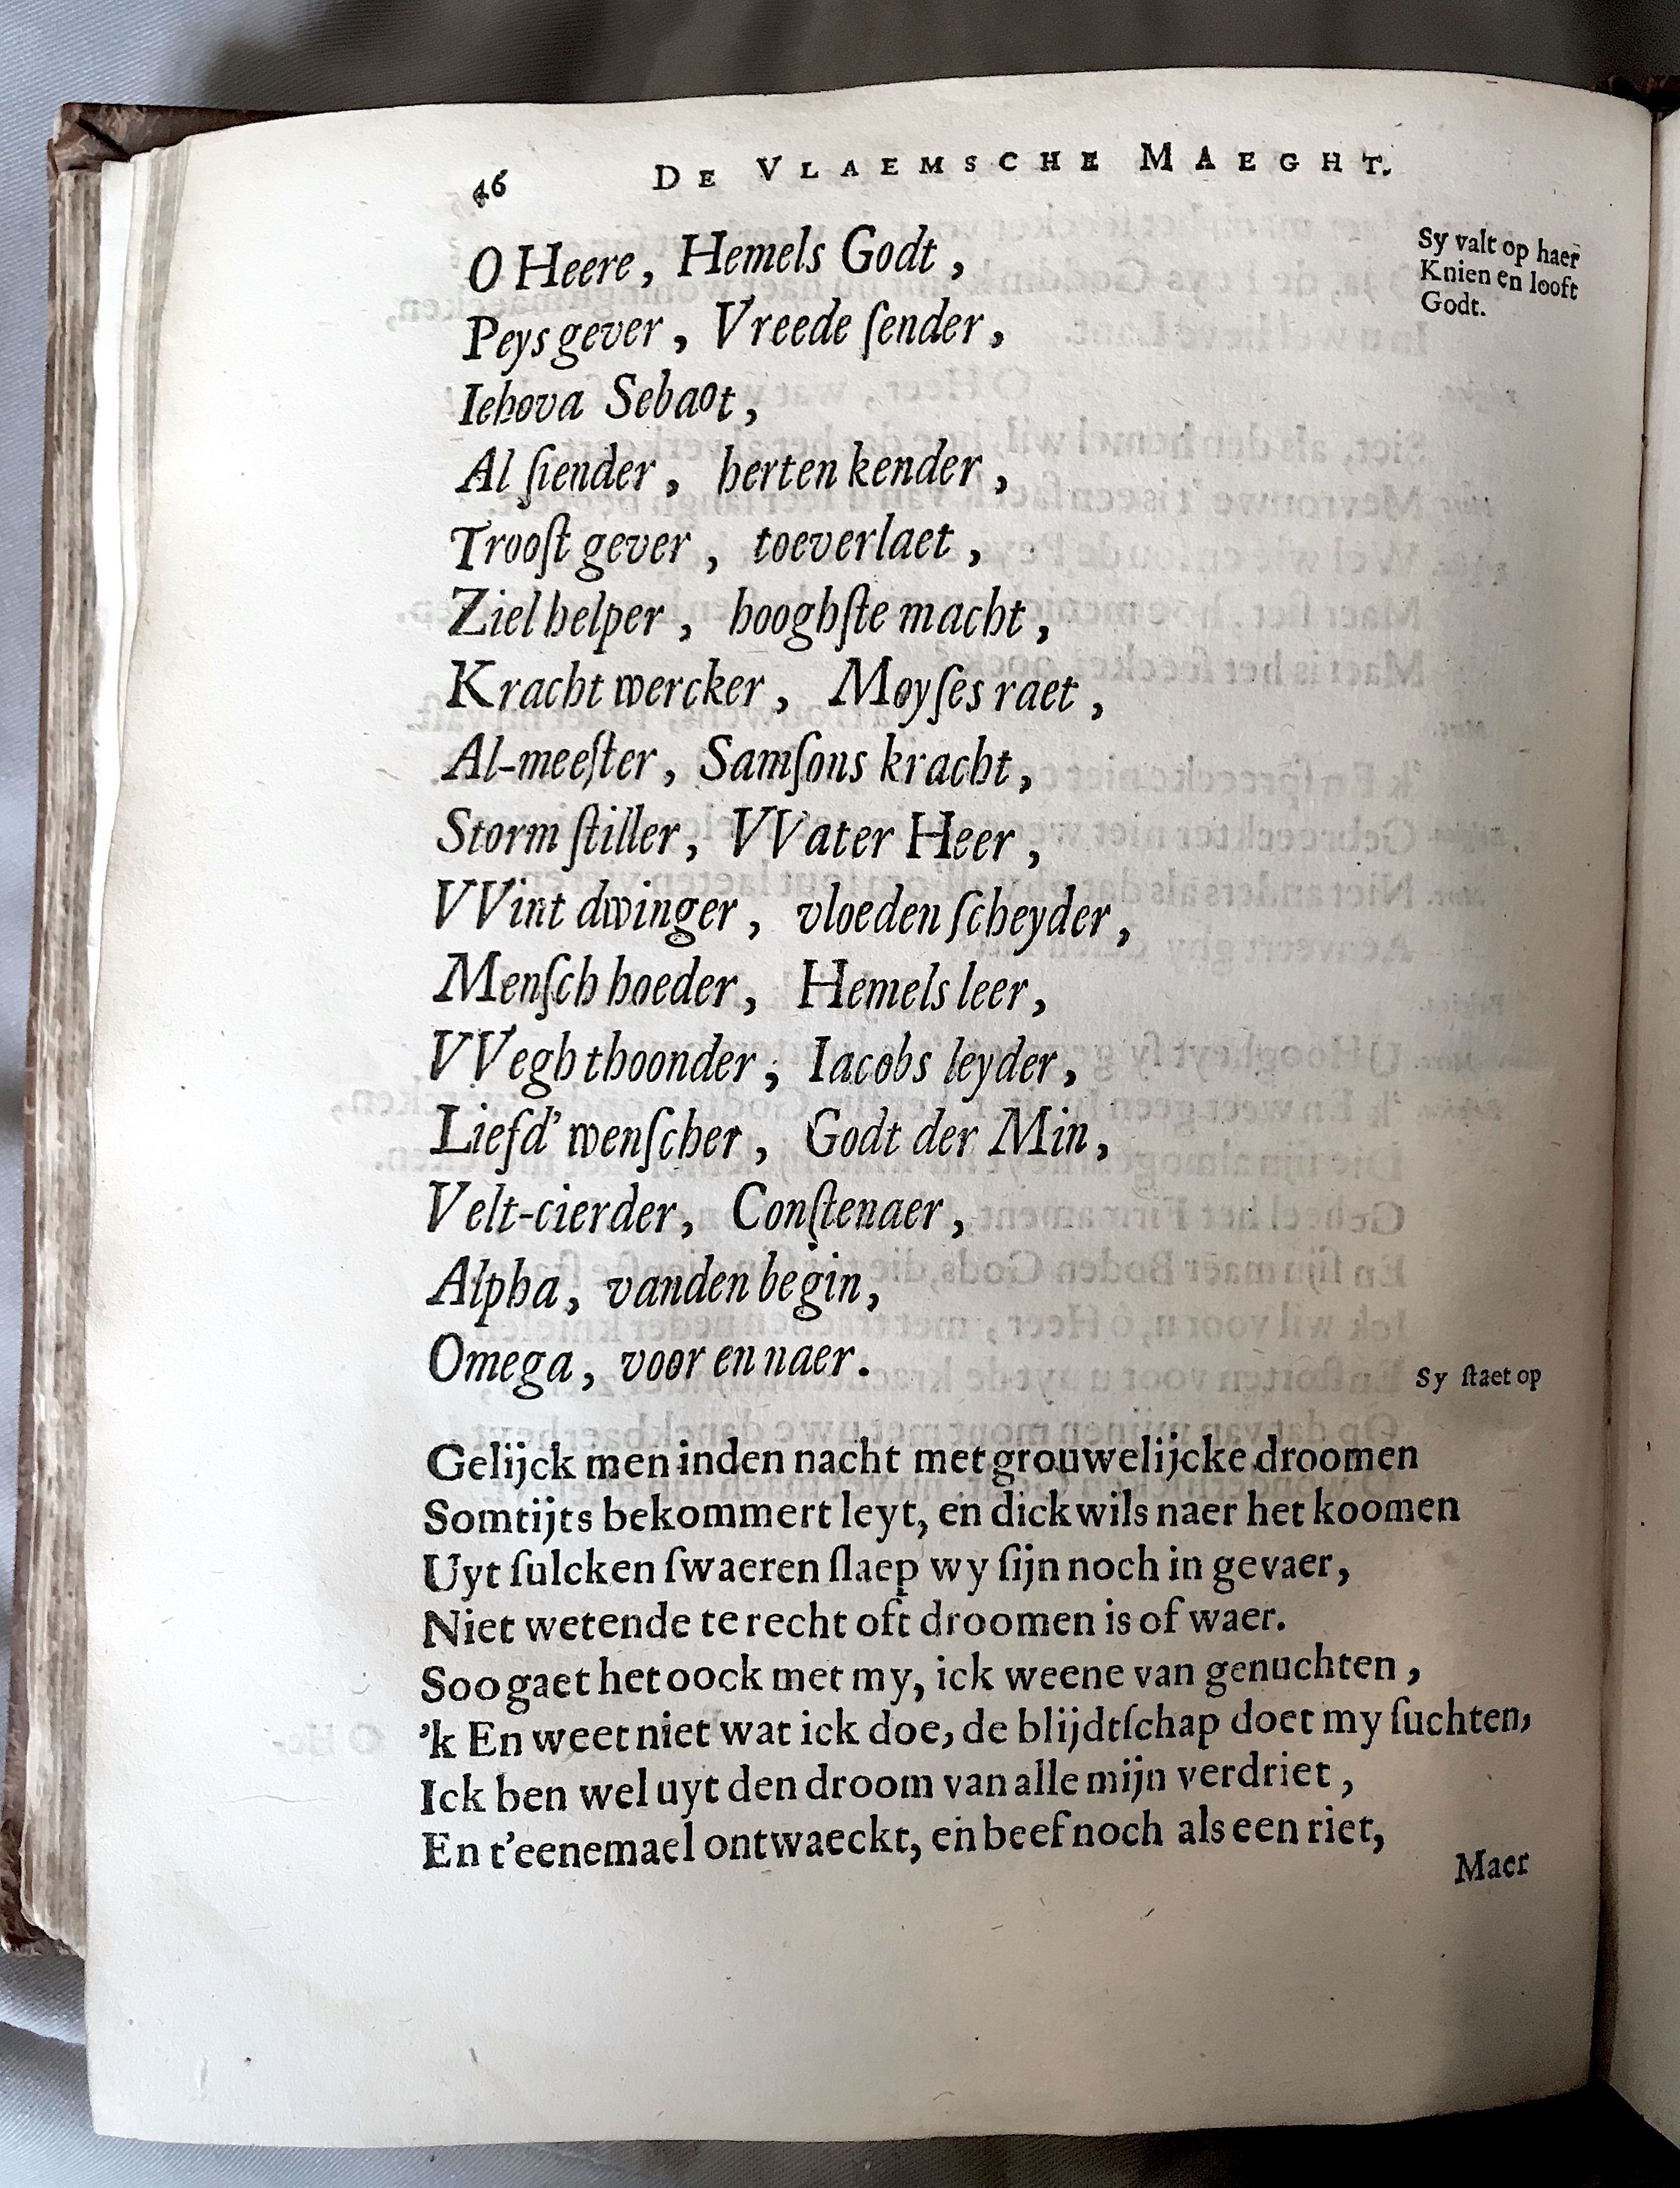 46 DE VLAEMSCHE MAEGHT.
O Heere, Hemels Godt,
Sy valt op haer
Knien en looft
Godt.
Peys gever, Vreede ſender,
Iehova Sebaot,
Al ſiender, herten kender,
Trooſt gever, toeverlaet,
Ziel helper, hooghſte macht,
Kracht wercker, Moyſes raet,
Al-meeſter, Samſons kracht,
Storm ſtiller, VVater Heer,
VVint dwinger, vloeden ſcheyder,
Menſch hoeder, Hemels leer,
VVegh thoonder, Iacobs leyder,
Liefd' wenſcher, Godt der Min,
Velt-cierder, Conſtenaer,
Alpha, vanden begin,
Omega, voor en naer.
Sy ſtaet op
Gelijck men inden nacht met grouwelijcke droomen
Somtijts bekommert leyt, en dickwils naer het koomen
Uyt ſulcken ſwaeren ſlaep wy ſijn noch in gevaer,
Niet wetende te recht oft droomen is of waer.
Soo gaet het oock met my, ick weene van genuchten,
'k En weet niet wat ick doe, de blijdtſchap doet my ſuchten,
Ick ben wel uyt den droom van alle mijn verdriet,
En t'eenemael ontwaeckt, en beef noch als een riet,
Maer